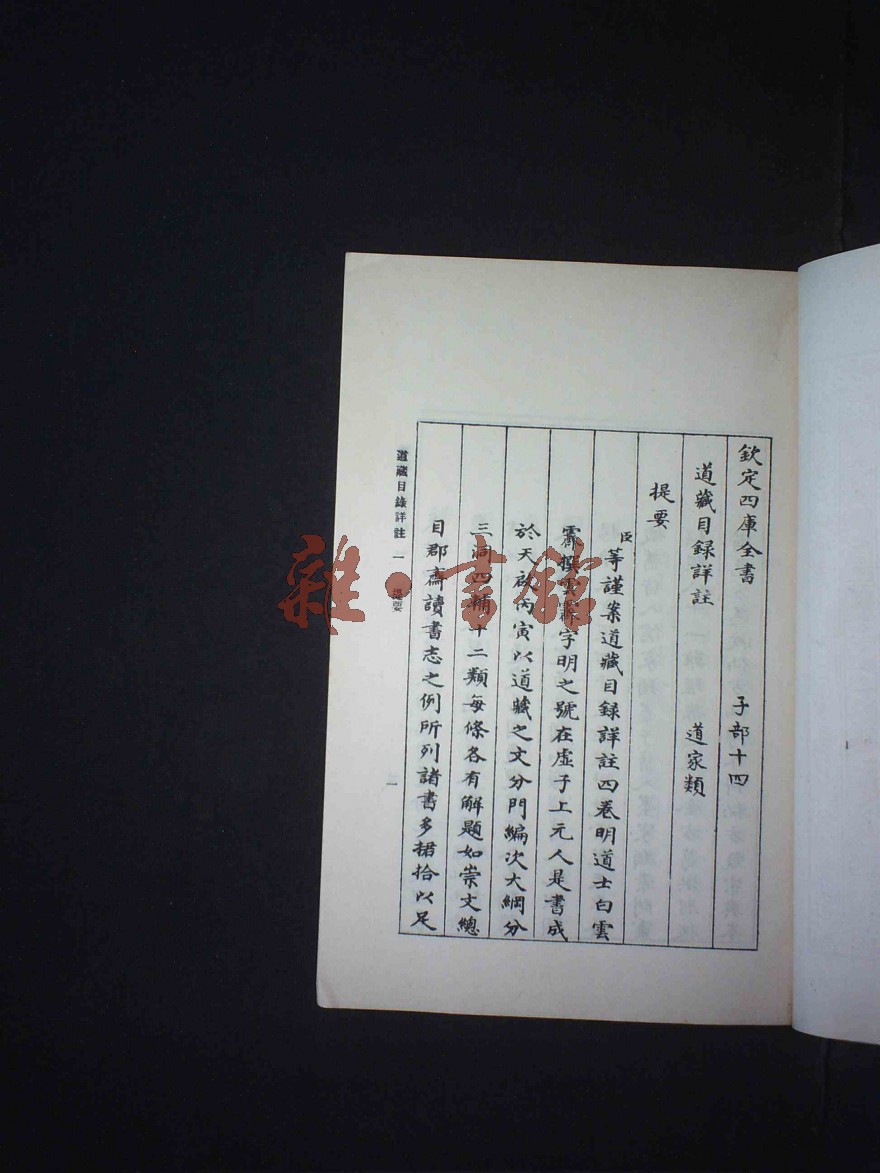 欽定四庫全書 子部十四
道藏目録詳註 道家類
提要
臣等謹案道藏目録詳註四卷明道士白雲
霽撰雲霽字明之號在虛子上元人是書成
於天啟丙寅以道藏之文分門編次大綱分
三洞四輔十二類每條各有解題如崇文總
目郡齋讀書志之例所列諸書多捃拾以足
道藏目錄詳註 一 提要 一
雜·書館